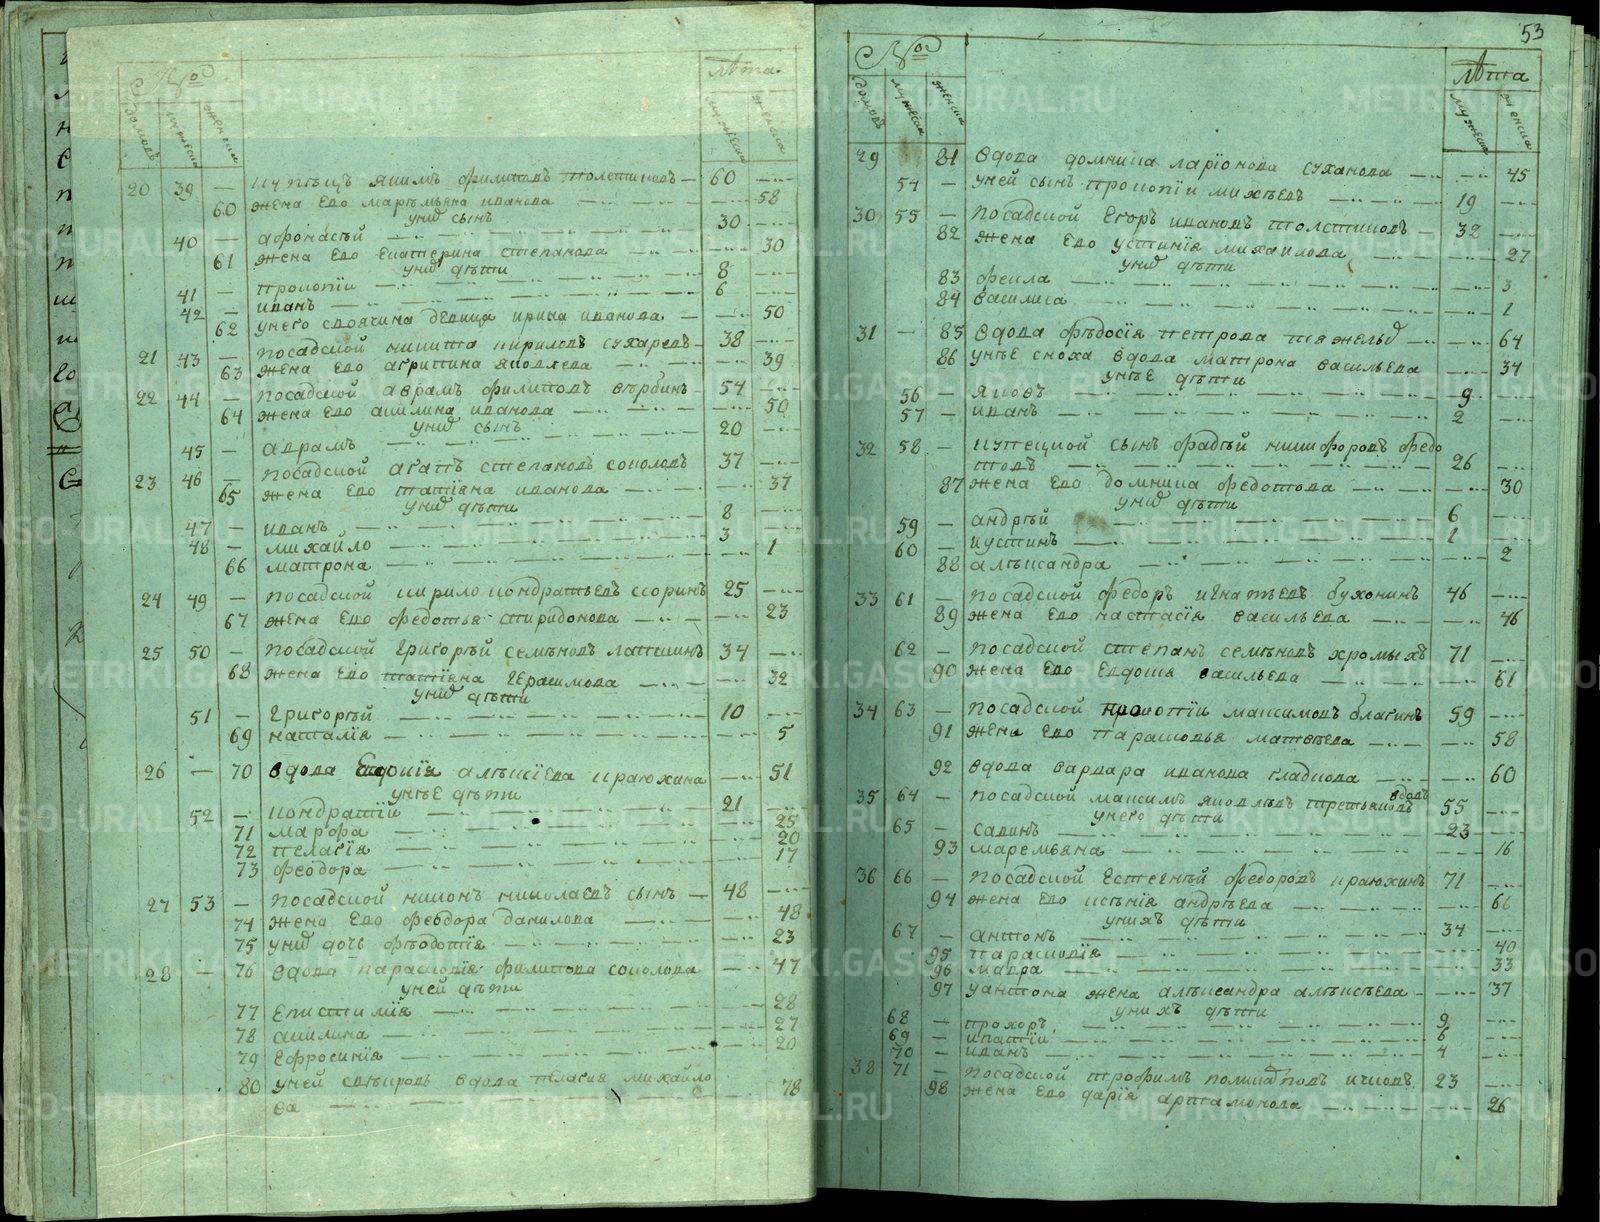 №
лѣта
домовъ мужеска женска мужеска женска
20 39 — купецъ якимъ филиповъ толстиковъ — 60
60 жена ево марѣмьяна иванова 58
унихъ сынъ
40 — афонасѣй 30
61 жена ево екатерина степанова 30
унихъ дѣти
41 — прокопїи 8
42 — иванъ 6
62 унего своячина девица ирина иванова — 50
21 43 — посадской никита кириловъ сухаревъ — 38
63 жена ево агрипина яковлева 39
22 44 — посадской аврамъ филиповъ вербинъ — 54
64 жена ево акилина иванова 50
унихъ сынъ
45 — аврамъ 20
23 46 — посадской агапъ степановъ соколовъ 37
65 жена ево татїяна иванова 37
унихъ дѣти
47 — иванъ 8
48 — михайло 3
66 матрона 1
24 49 — посадской кирило кондратьевъ ссоринъ 25
67 жена ево федотья спиридонова 23
25 50 — посадской григорѣй семѣновъ лапшинъ 34
68 жена ево татїяна герасимова 32
унихъ дѣти
51 — григорѣй 10
69 наталїя 5
26 — 70 вдова алѣксїева краюхина 51
унѣе дѣти
52 — кондратїй 21
71 марфа 25
72 пелагїя 20
73 феодора 17
27 53 — посадской никонъ николаевъ сынъ — 48
74 жена ево феодора данилова 48
75 унихъ дочь фѣодотїя 23
28 — 76 вдова параскодїя филипова соколова 47
уней дѣти
77 епистимїя 28
78 акилина 27
79 ефросинїя 20
80 уней свѣкровь вдова пелагия михайло
ва 78
53
№
лѣта
домовъ мужеска женска мужеска женска
29 81 вдова домника ларїонова суханова 45
54 — уней сынъ прокопїи михѣевъ 19
30 55 — посадской егоръ ивановъ толстиковъ — 32
82 жена ево устинїя михаилова 27
унихъ дѣти
83 фекла 3
84 василиса 1
31 — 85 вдова фѣдосїя петрова 64
86 унѣе сноха вдова матрона васильева 34
унѣе дѣти
56 — яковъ 9
57 — иванъ 2
32 58 — купецкой сынъ фадѣй никифоровъ федо
товъ 26
87 жена ево домника федотова 30
унихъ дѣти
59 — андрѣй 6
60 — иустинъ 1
88 алѣксандра 2
33 61 — посадской федоръ игнатьевъ бухонинъ 46
89 жена ево настасїя васильева 46
62 — посадской степан семѣновъ хромыхъ 71
90 жена ево евдокия васильева 61
34 63 — посадской прокопїи максимовъ благинъ 59
91 жена ево парасковья матвѣева 58
92 вдова варвара иванова гладкова 60
35 64 — посадской максимъ яковлѣвъ третьяковъ вдовъ 55
унего дѣти
65 — савинъ 23
93 маремьяна 16
36 66 — посадской евстегнѣй федоровъ краюхинъ 71
94 жена ево ксѣнїя андрѣева 66
унихъ дѣти
67 — антонъ 34
95 парасковїя 40
96 мавра 33
97 уантона жена алѣксандра алѣксѣева 37
унихъ дѣти
68 — прохоръ 9
69 — ипатїй 6
70 — иванъ 4
38 71 — посадской трофимъ 23
98 жена ево дарїя артамонова 26